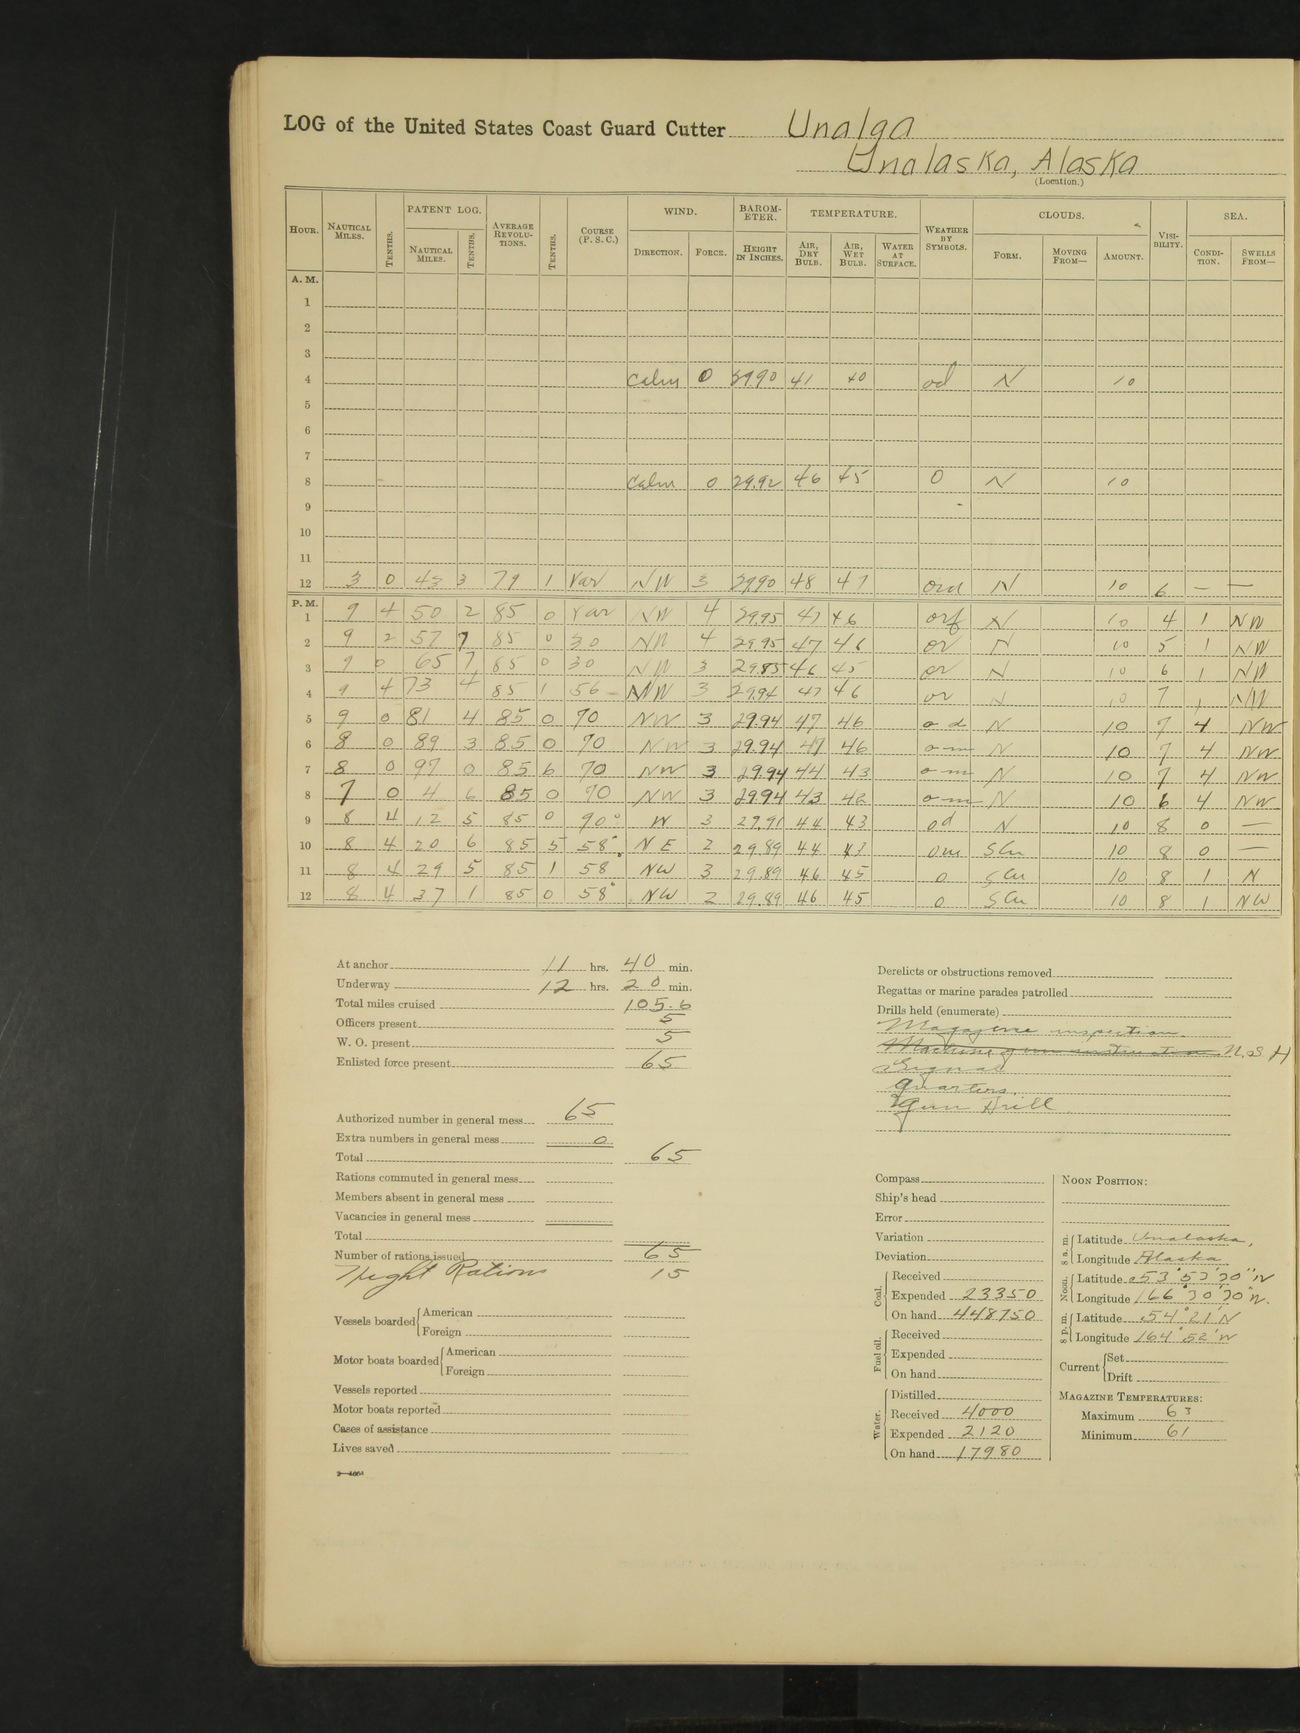 LOG of the United States Coast Guard Cutter Unalga
Unalaska, Alaska
(Location.)
HOUR. NAUTICAL MILES. TENTHS. PATENT LOG. NAUTICAL MILES. TENTHS. AVERAGE REVOLUTIONS. TENTHS. COURSE (P. S. C.) WIND. DIRECTION. FORCE. BAROMETER. HEIGHT IN INCHES. TEMPERATURE. AIR, DRY BULB. AIR, WET BULB. WATER AT SURFACE. WEATHER BY SYMBOLS. CLOUDS. FORM. MOVING FROM— AMOUNT. VISIBILITY. SEA. CONDITION. SWELLS FROM—
A. M.
1
2
3
4 Calm 0 29.90 41 40 od N 10
5
6
7
8 Calm 0 29.92 46 45 O N 10
9
10
11
12 3 0 43 3 79 1 Var NW 3 29.90 48 47 ord N 10 6 — —
P. M.
1 9 4 50 2 85 0 Var NW 4 29.95 47 46 orf N 10 4 1 NW
2 9 2 57 7 85 0 30 NW 4 29.95 47 46 or N 10 5 1 NW
3 9 0 65 7 85 0 30 NW 3 29.85 46 45 or N 10 6 1 NW
4 9 4 73 4 85 1 56 NW 3 29.94 47 46 or N 10 7 1 NW
5 9 0 81 4 85 0 70 NW 3 29.94 47 46 o d N 10 7 4 NW
6 8 0 89 3 85 0 70 NW 3 29.94 47 46 o m N 10 7 4 NW
7 8 0 97 0 85 6 70 NW 3 29.94 44 43 o m N 10 7 4 NW
8 7 0 4 6 85 0 70 NW 3 29.94 43 42 o m N 10 6 4 NW
9 8 4 12 5 85 0 90° W 3 29.91 44 43 od N 10 8 0 —
10 8 4 20 6 85 5 58° NE 2 29.89 44 43 om SCu 10 8 0 —
11 8 4 29 5 85 1 58 NW 3 29.89 46 45 o SCu 10 8 1 N
12 8 4 37 1 85 0 58° NW 2 29.89 46 45 o SCu 10 8 1 NW
At anchor 11 hrs. 40 min.
Underway 12 hrs. 20 min.
Total miles cruised 105.6
Officers present 5
W. O. present 5
Enlisted force present 65
Authorized number in general mess 65
Extra numbers in general mess 0
Total 65
Rations commuted in general mess
Members absent in general mess
Vacancies in general mess
Total
Number of rations issued 65
Night Rations 15
Vessels boarded American
Foreign
Motor boats boarded American
Foreign
Vessels reported
Motor boats reported
Cases of assistance
Lives saved
Derelicts or obstructions removed
Regattas or marine parades patrolled
Drills held (enumerate)
Magazine inspection
Machine gun instruction N.S.H
Signal
Quarters
Gun Drill
Compass
Ship's head
Error
Variation
Deviation
Coal. Received
Expended 23350
On hand 448750
Fuel oil. Received
Expended
On hand
Water. Distilled
Received 4000
Expended 2120
On hand 17980
NOON POSITION:
8 a. m. Latitude Unalaska,
Longitude Alaska
Noon. Latitude 53° 53' 30" N
Longitude 166° 30' 30" W.
8 p. m. Latitude 54° 21' N
Longitude 164° 52' W
Current Set
Drift
MAGAZINE TEMPERATURES:
Maximum 63
Minimum 61